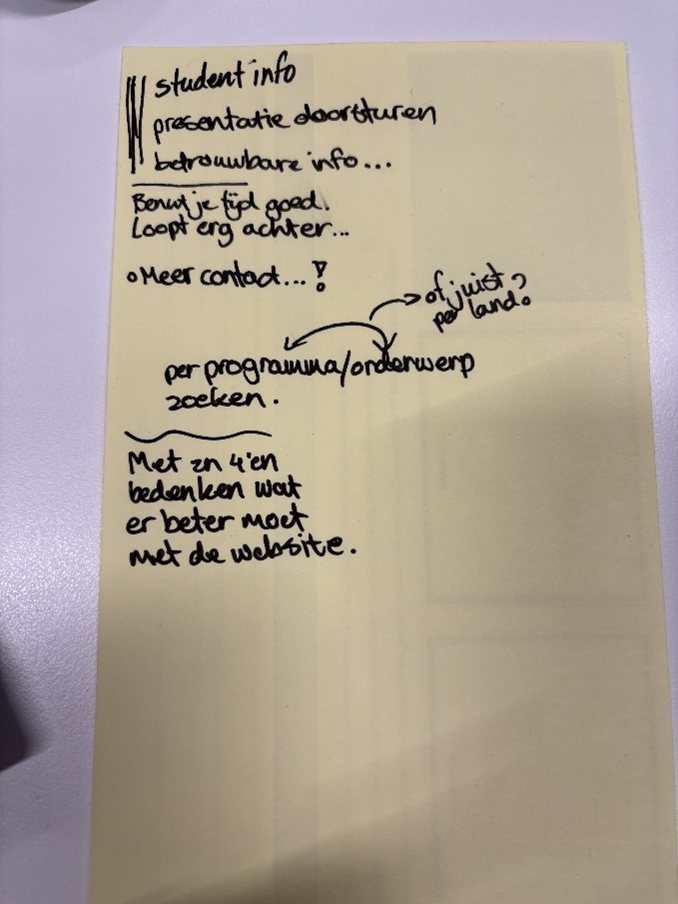 student info
presentatie doorsturen
betrouwbare info...
Benut je tijd goed.
Loopt erg achter...
Meer contact...!
of juist
per land?
per programma/onderwerp
zoeken.
Met zn 4'en
bedenken wat
er beter moet
met de website.